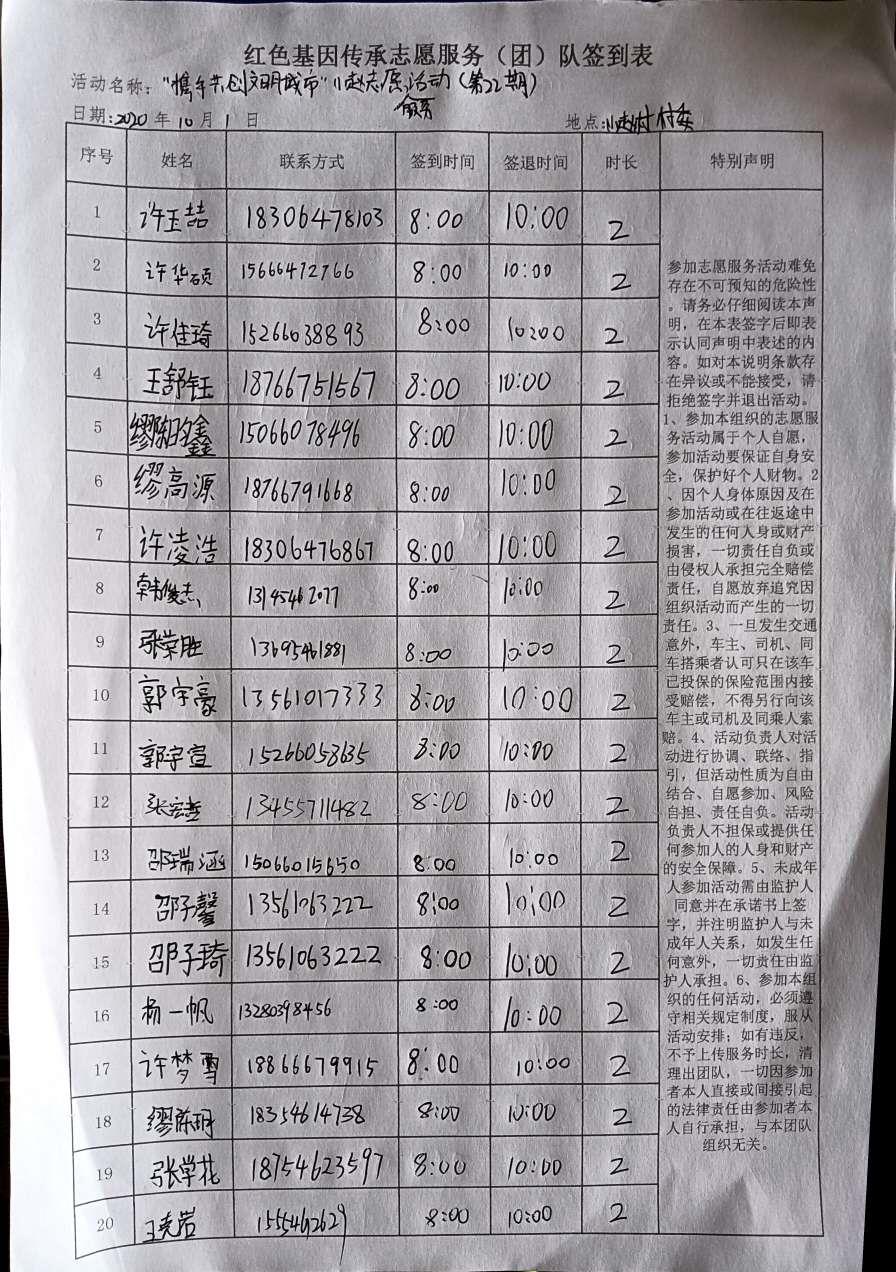 红色基因传承志愿服务（团）队签到表
活动名称："携手共创文明城市"小赵志愿服务活动（第22期）
日期:2020年10月1日 地点:小赵村村委
序号 姓名 联系方式 签到时间 签退时间 时长 特别声明
1 许玉喆 18306478103 8:00 10:00 2
2 许华硕 15666472766 8:00 10:00 2
3 许佳琦 15266038893 8:00 10:00 2
4 王舒钰 18766751567 8:00 10:00 2
5 缪陈昀鑫 15066078496 8:00 10:00 2
6 缪高源 18766791668 8:00 10:00 2
7 许凌浩 18306476867 8:00 10:00 2
8 韩俊志 13145462077 8:00 10:00 2
9 张荣胜 13695461881 8:00 10:00 2
10 郭宇豪 13561017333 8:00 10:00 2
11 郭宇宣 15266058635 8:00 10:00 2
12 张宏 13455711482 8:00 10:00 2
13 邵瑞涵 15066015650 8:00 10:00 2
14 邵子馨 13561063222 8:00 10:00 2
15 邵子琦 13561063222 8:00 10:00 2
16 杨一帆 13280398456 8:00 10:00 2
17 许梦雪 18866679915 8:00 10:00 2
18 缪陈玥 18354614738 8:00 10:00 2
19 张学花 18754623597 8:00 10:00 2
20 王尧岩 1555462629 8:00 10:00 2
参加志愿服务活动难免
存在不可预知的危险性
。请务必仔细阅读本声
明，在本表签字后即表
示认同声明中表述的内
容。如对本说明条款存
在异议或不能接受，请
拒绝签字并退出活动。
1、参加本组织的志愿服
务活动属于个人自愿，
参加活动要保证自身安
全，保护好个人财物。2
、因个人身体原因及在
参加活动或在往返途中
发生的任何人身或财产
损害，一切责任自负或
由侵权人承担完全赔偿
责任，自愿放弃追究因
组织活动而产生的一切
责任。3、一旦发生交通
意外，车主、司机、同
车搭乘者认可只在该车
已投保的保险范围内接
受赔偿，不得另行向该
车主或司机及同乘人索
赔。4、活动负责人对活
动进行协调、联络、指
引，但活动性质为自由
结合、自愿参加、风险
自担、责任自负。活动
负责人不担保或提供任
何参加人的人身和财产
的安全保障。5、未成年
人参加活动需由监护人
同意并在承诺书上签
字，并注明监护人与未
成年人关系，如发生任
何意外，一切责任由监
护人承担。6、参加本组
织的任何活动，必须遵
守相关规定制度，服从
活动安排；如有违反，
不予上传服务时长，清
理出团队，一切因参加
者本人直接或间接引起
的法律责任由参加者本
人自行承担，与本团队
组织无关。